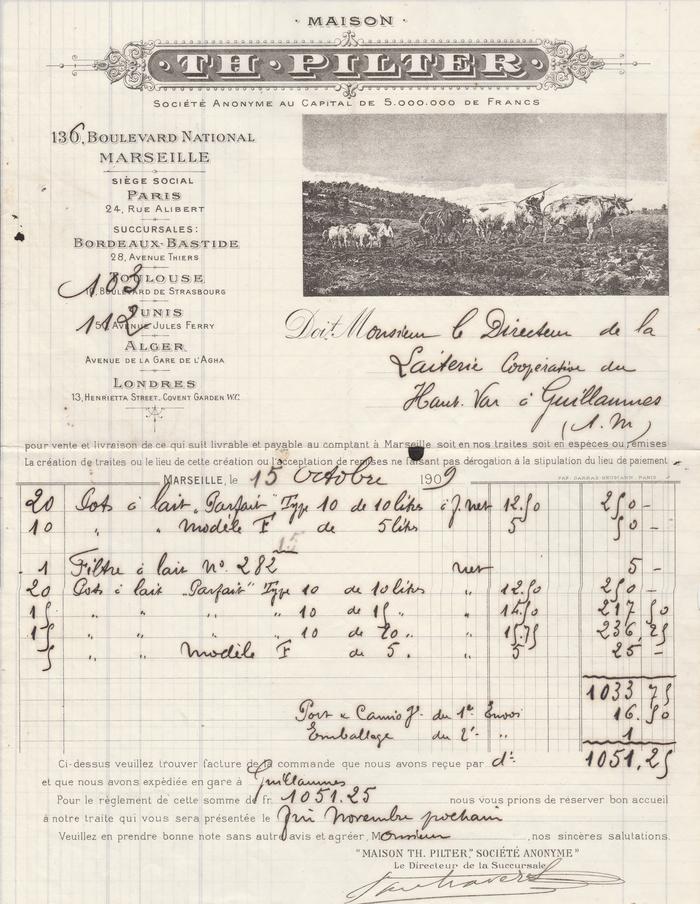 · MAISON ·
· TH · PILTER ·
SOCIÉTÉ ANONYME AU CAPITAL DE 5.000.000 DE FRANCS
136, BOULEVARD NATIONAL
MARSEILLE
SIÈGE SOCIAL
PARIS
24, RUE ALIBERT
SUCCURSALES:
BORDEAUX-BASTIDE
28, AVENUE THIERS
TOULOUSE
BOULEVARD DE STRASBOURG
103
TUNIS
AVENUE JULES FERRY
112
ALGER
AVENUE DE LA GARE DE L'AGHA
LONDRES
13, HENRIETTA STREET, COVENT GARDEN W.C.
Doit Monsieur le Directeur de la
Laiterie Coopérative du
Haut. Var à Guillaumes
(A. M)
pour vente et livraison de ce qui suit livrable et payable au comptant à Marseille soit en nos traites soit en espèces ou remises
La création de traites ou le lieu de cette création ou l'acceptation de remises ne faisant pas dérogation à la stipulation du lieu de paiement
MARSEILLE, le 15 Octobre 1909
PAP. BARRAS-NEUMANN, PARIS
20 Pots à lait "Parfait" Type 10 de 10 litres à f. net 12.50 250 -
10 " " Modèle F de 5 litres 5 50 -
15
1 Filtre à lait No. 282 net 5 -
20 Pots à lait "Parfait" Type 10 de 10 litres " 12.50 250 -
15 " " " " 10 de 15 " " 14.50 217 50
15 " " " " 10 de 20 " " 15.75 236,25
5 " " Modèle F de 5 " " 5 25 -
1033 75
Port & Camio ge. du 1er Envoi 16.50
Emballage du 2e " 1
1051,25
Ci-dessus veuillez trouver facture de la commande que nous avons reçue par do
et que nous avons expédiée en gare à Guillaumes
Pour le règlement de cette somme de fr. 1051.25 nous vous prions de réserver bon accueil
à notre traite qui vous sera présentée le fin Novembre prochain
Veuillez en prendre bonne note sans autre avis et agréer, Monsieur, nos sincères salutations.
"MAISON TH. PILTER," SOCIÉTÉ ANONYME"
Le Directeur de la Succursale